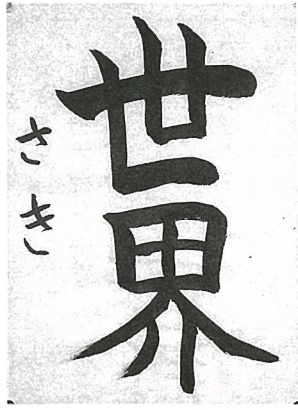 世界
さき